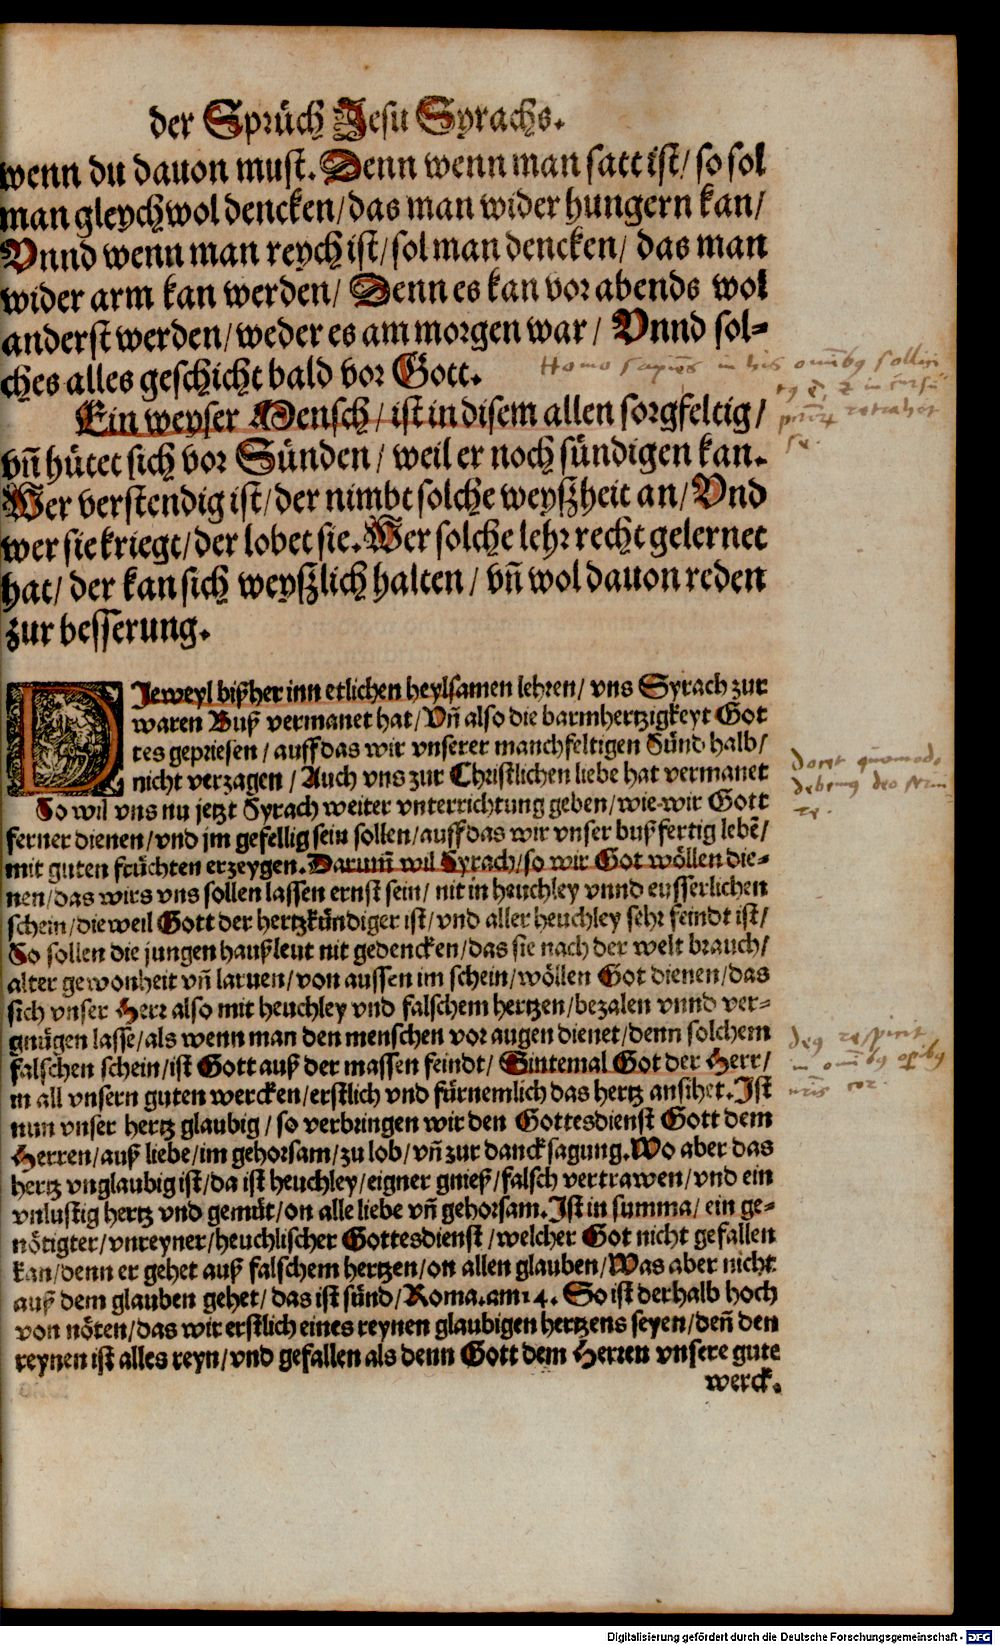 der Sprüch Jesu Syrachs.
wenn du dauon must. Denn wenn man satt ist/ so sol
man gleychwol dencken/ das man wider hungern kan/
Vnnd wenn man reych ist/ sol man dencken/ das man
wider arm kan werden/ Denn es kan vor abends wol
anderst werden/ weder es am morgen war/ Vnnd sol-
ches alles geschicht bald vor Gott.
Homo sapiēs in his omībꝫ
Ein weyser Mensch/ ist in disem allen sorgfeltig/
retrahet
se.
vñ hütet sich vor Sünden/ weil er noch sündigen kan.
Wer verstendig ist/ der nimbt solche weyßheit an/ Vnd
wer sie kriegt/ der lobet sie. Wer solche lehr recht gelernet
hat/ der kan sich weyßlich halten/ vñ wol dauon reden
zur besserung.
DJeweyl bißher inn etlichen heylsamen lehren/ vns Syrach zur
waren Buß vermanet hat/ Vñ also die barmhertzigkeyt Got
tes gepriesen/ auff das wir vnserer manchfeltigen Sünd halb/
nicht verzagen/ Auch vns zur Christlichen liebe hat vermanet
docet quōmodo
debemꝰ deo
So wil vns nu jetzt Syrach weiter vnterrichtung geben/ wie wir Gott
ferner dienen/ vnd jm gefellig sein sollen/ auff das wir vnser bußfertig lebē/
mit guten früchten erzeygen. Darumm̄ wil Syrach/ so wir Got wöllen die-
nen/ das wirs vns sollen lassen ernst sein/ nit in heuchley vnnd eusserlichen
schein/ dieweil Gott der hertzkündiger ist/ vnd aller heuchley sehr feindt ist/
So sollen die jungen haußleut nit gedencken/ das sie nach der welt brauch/
alter gewonheit vñ laruen/ von aussen im schein/ wöllen Got dienen/ das
sich vnser Herr also mit heuchley vnd falschem hertzen/ bezalen vnnd ver-
gnügen lasse/ als wenn man den menschen vor augen dienet/ denn solchem
falschen schein/ ist Gott auß der massen feindt/ Sintemal Got der Herr/
deꝰ respicit
in omībꝫ opibꝫ
nr̄is cor.
in all vnsern guten wercken/ erstlich vnd fürnemlich das hertz ansihet. Jst
nun vnser hertz glaubig/ so verbringen wir den Gottesdienst Gott dem
Herren/ auß liebe/ im gehorsam/ zu lob/ vñ zur dancksagung. Wo aber das
hertz vnglaubig ist/ da ist heuchley/ eigner gnieß/ falsch vertrawen/ vnd ein
vnlustig hertz vnd gemüt/ on alle liebe vñ gehorsam. Jst in summa/ ein ge-
nötigter/ vnreyner/ heuchlischer Gottesdienst/ welcher Got nicht gefallen
kan/ denn er gehet auß falschem hertzen/ on allen glauben/ Was aber nicht
auß dem glauben gehet/ das ist sünd/ Roma. am 14. So ist derhalb hoch
von nöten/ das wir erstlich eines reynen glaubigen hertzens seyen/ deñ den
reynen ist alles reyn/ vnd gefallen als denn Gott dem Herren vnsere gute
werck.
Digitalisierung gefördert durch die Deutsche Forschungsgemeinschaft - DFG